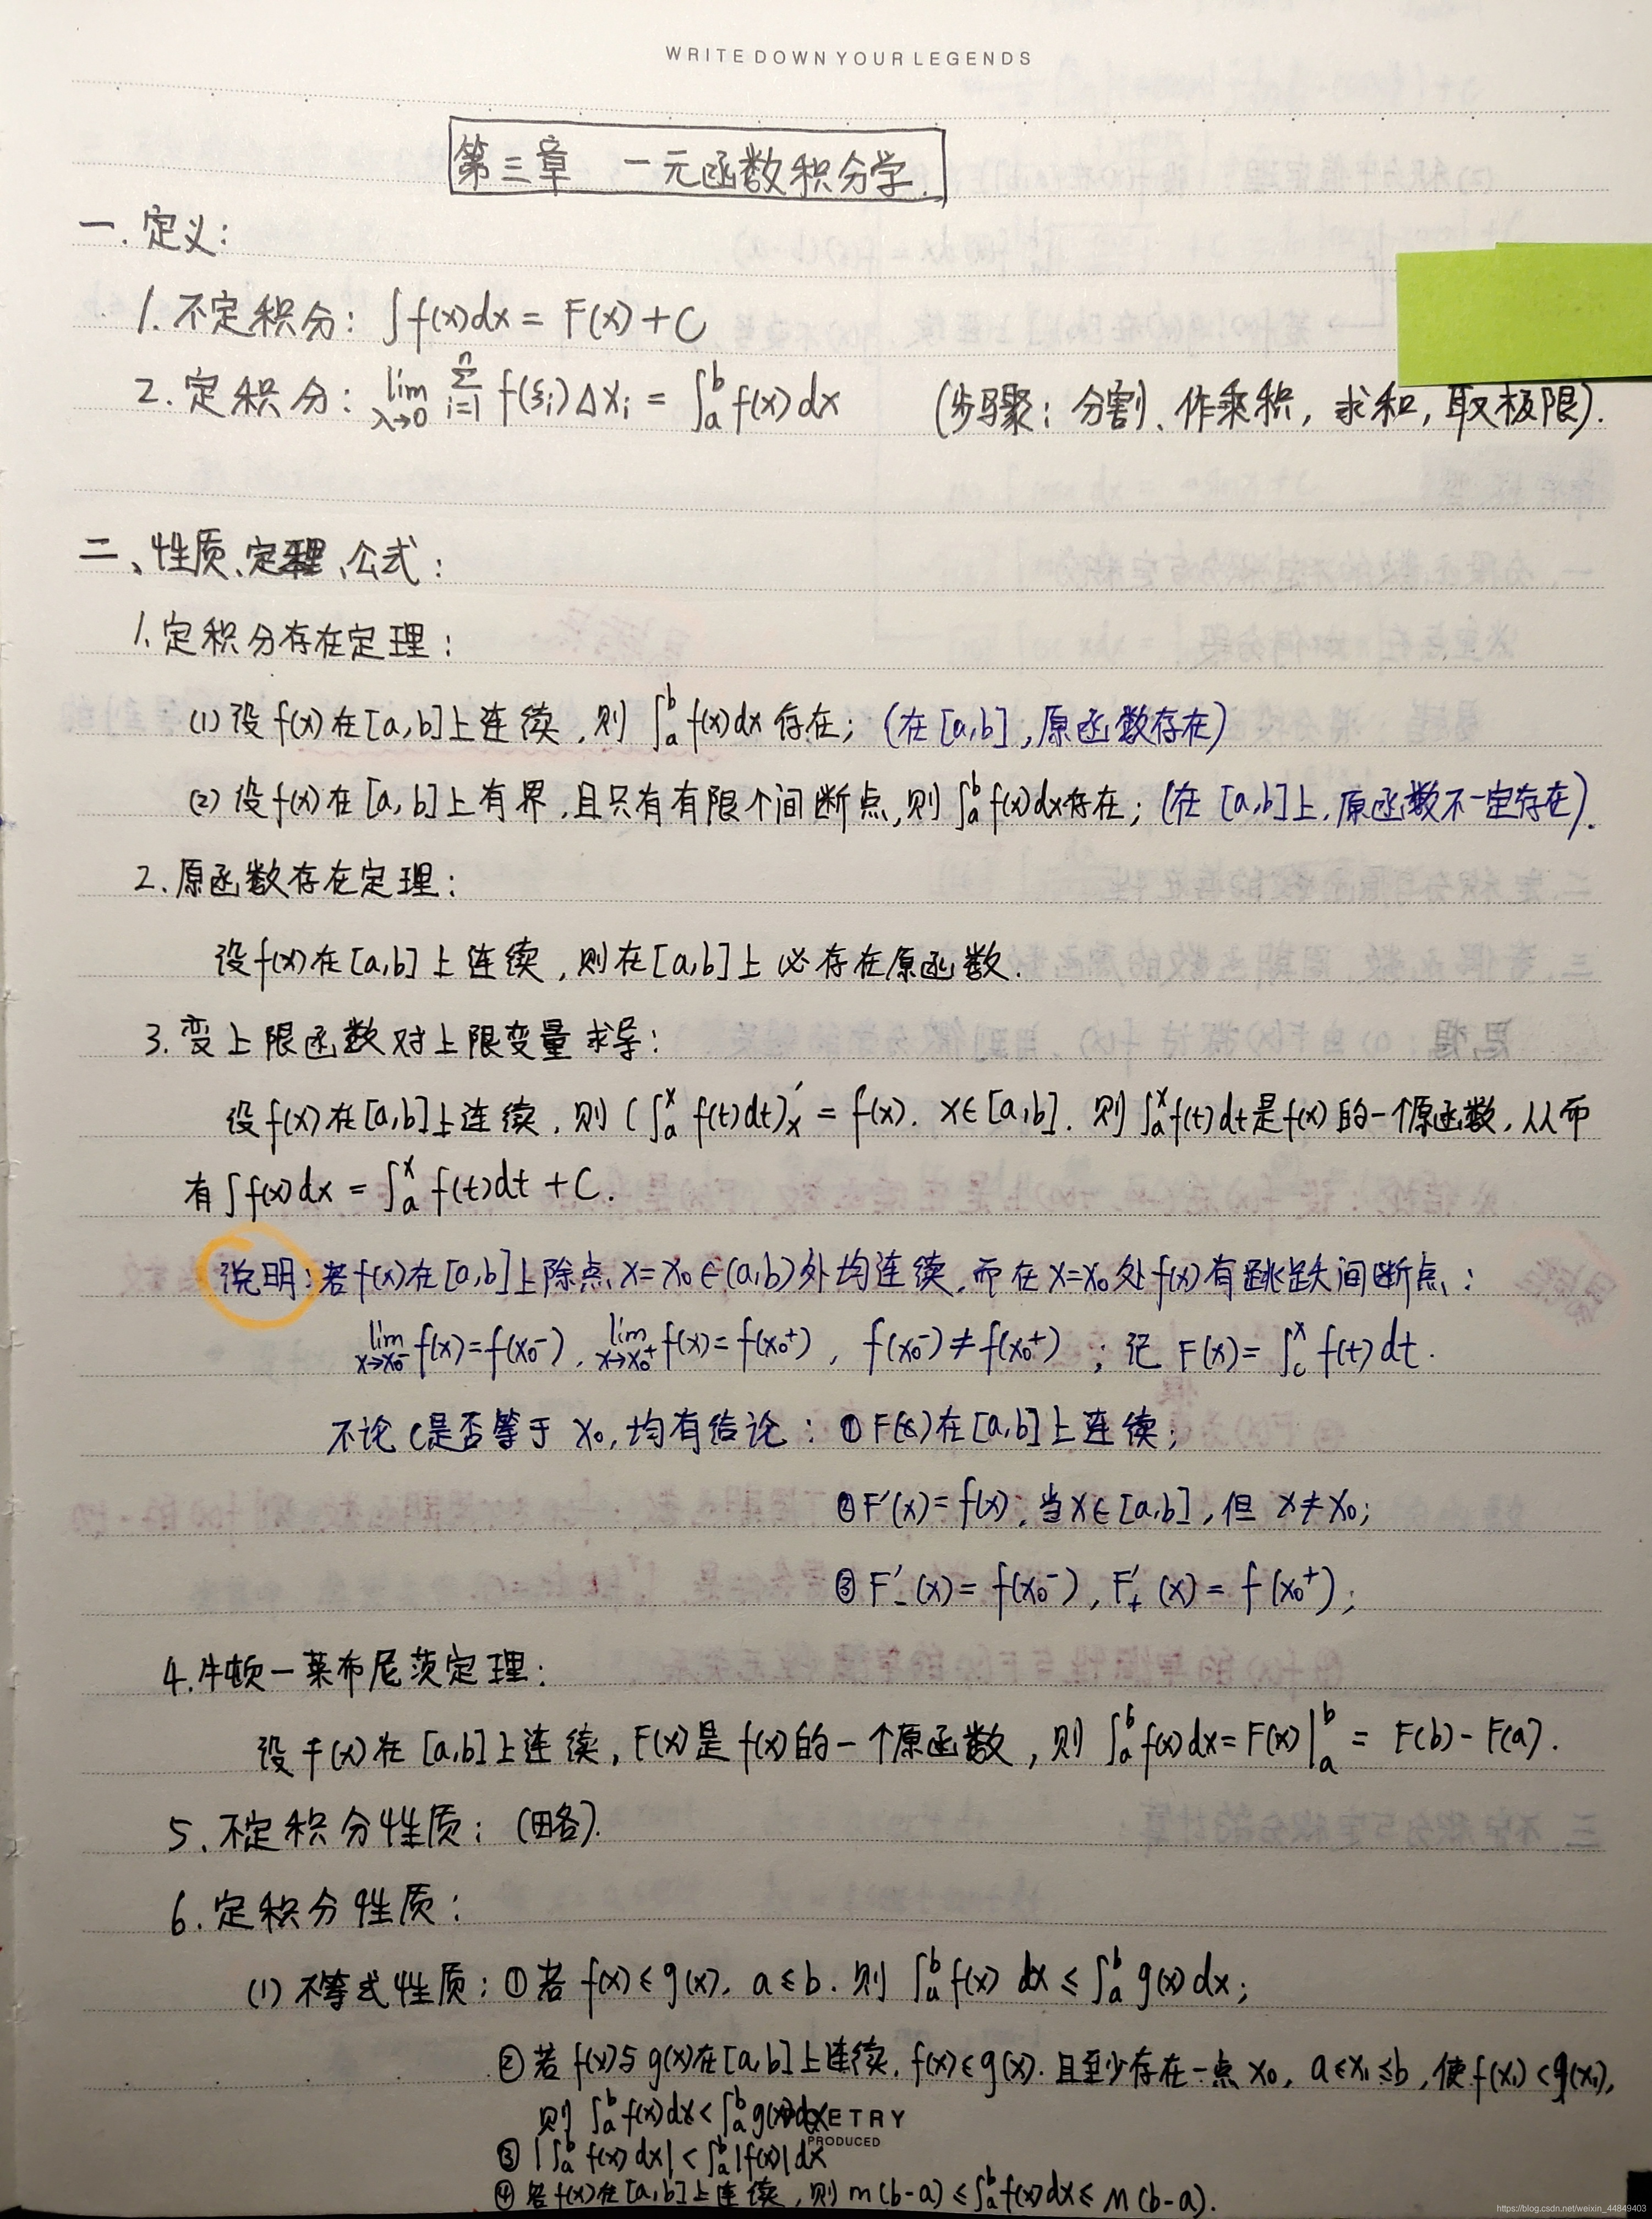 WRITE DOWN YOUR LEGENDS
第三章 一元函数积分学.
一. 定义:
1. 不定积分: ∫f(x)dx = F(x)+C
2. 定积分: lim_{λ→0} Σ_{i=1}^{n} f(ξi)Δxi = ∫_a^b f(x)dx (步骤: 分割、作乘积, 求和, 取极限).
二、性质、定理、公式:
1. 定积分存在定理:
(1) 设f(x)在[a,b]上连续, 则 ∫_a^b f(x)dx 存在; (在[a,b], 原函数存在)
(2) 设f(x)在[a,b]上有界, 且只有有限个间断点, 则∫_a^b f(x)dx存在; (在[a,b]上, 原函数不一定存在).
2. 原函数存在定理:
设f(x)在[a,b]上连续, 则在[a,b]上必存在原函数.
3. 变上限函数对上限变量求导:
设f(x)在[a,b]上连续, 则(∫_a^x f(t)dt)'_x = f(x). x∈[a,b]. 则∫_a^x f(t)dt是f(x)的一个原函数, 从而
有∫f(x)dx = ∫_a^x f(t)dt + C.
说明: 若f(x)在[a,b]上除点x=x₀∈(a,b)外均连续, 而在x=x₀处f(x)有跳跃间断点:
lim_{x→x₀⁻} f(x)=f(x₀⁻), lim_{x→x₀⁺} f(x)=f(x₀⁺), f(x₀⁻)≠f(x₀⁺); 记 F(x)=∫_c^x f(t)dt.
不论c是否等于x₀, 均有结论: ①F(x)在[a,b]上连续;
②F'(x)=f(x); 当x∈[a,b], 但x≠x₀;
③F'₋(x)=f(x₀⁻), F'₊(x)=f(x₀⁺);
4. 牛顿-莱布尼茨定理:
设f(x)在[a,b]上连续, F(x)是f(x)的一个原函数, 则∫_a^b f(x)dx=F(x)|_a^b = F(b)-F(a).
5. 不定积分性质: (略).
6. 定积分性质:
(1) 不等式性质: ①若f(x)≤g(x), a≤b. 则∫_a^b f(x)dx≤∫_a^b g(x)dx;
②若f(x)与g(x)在[a,b]上连续, f(x)≤g(x). 且至少存在一点x₀, a≤x₁≤b, 使f(x₁)<g(x₁),
则∫_a^b f(x)dx<∫_a^b g(x)dx ETRY
PRODUCED
③|∫_a^b f(x)dx|<∫_a^b |f(x)|dx
④若f(x)在[a,b]上连续, 则m(b-a)≤∫_a^b f(x)dx≤M(b-a).
https://blog.csdn.net/weixin_44849403